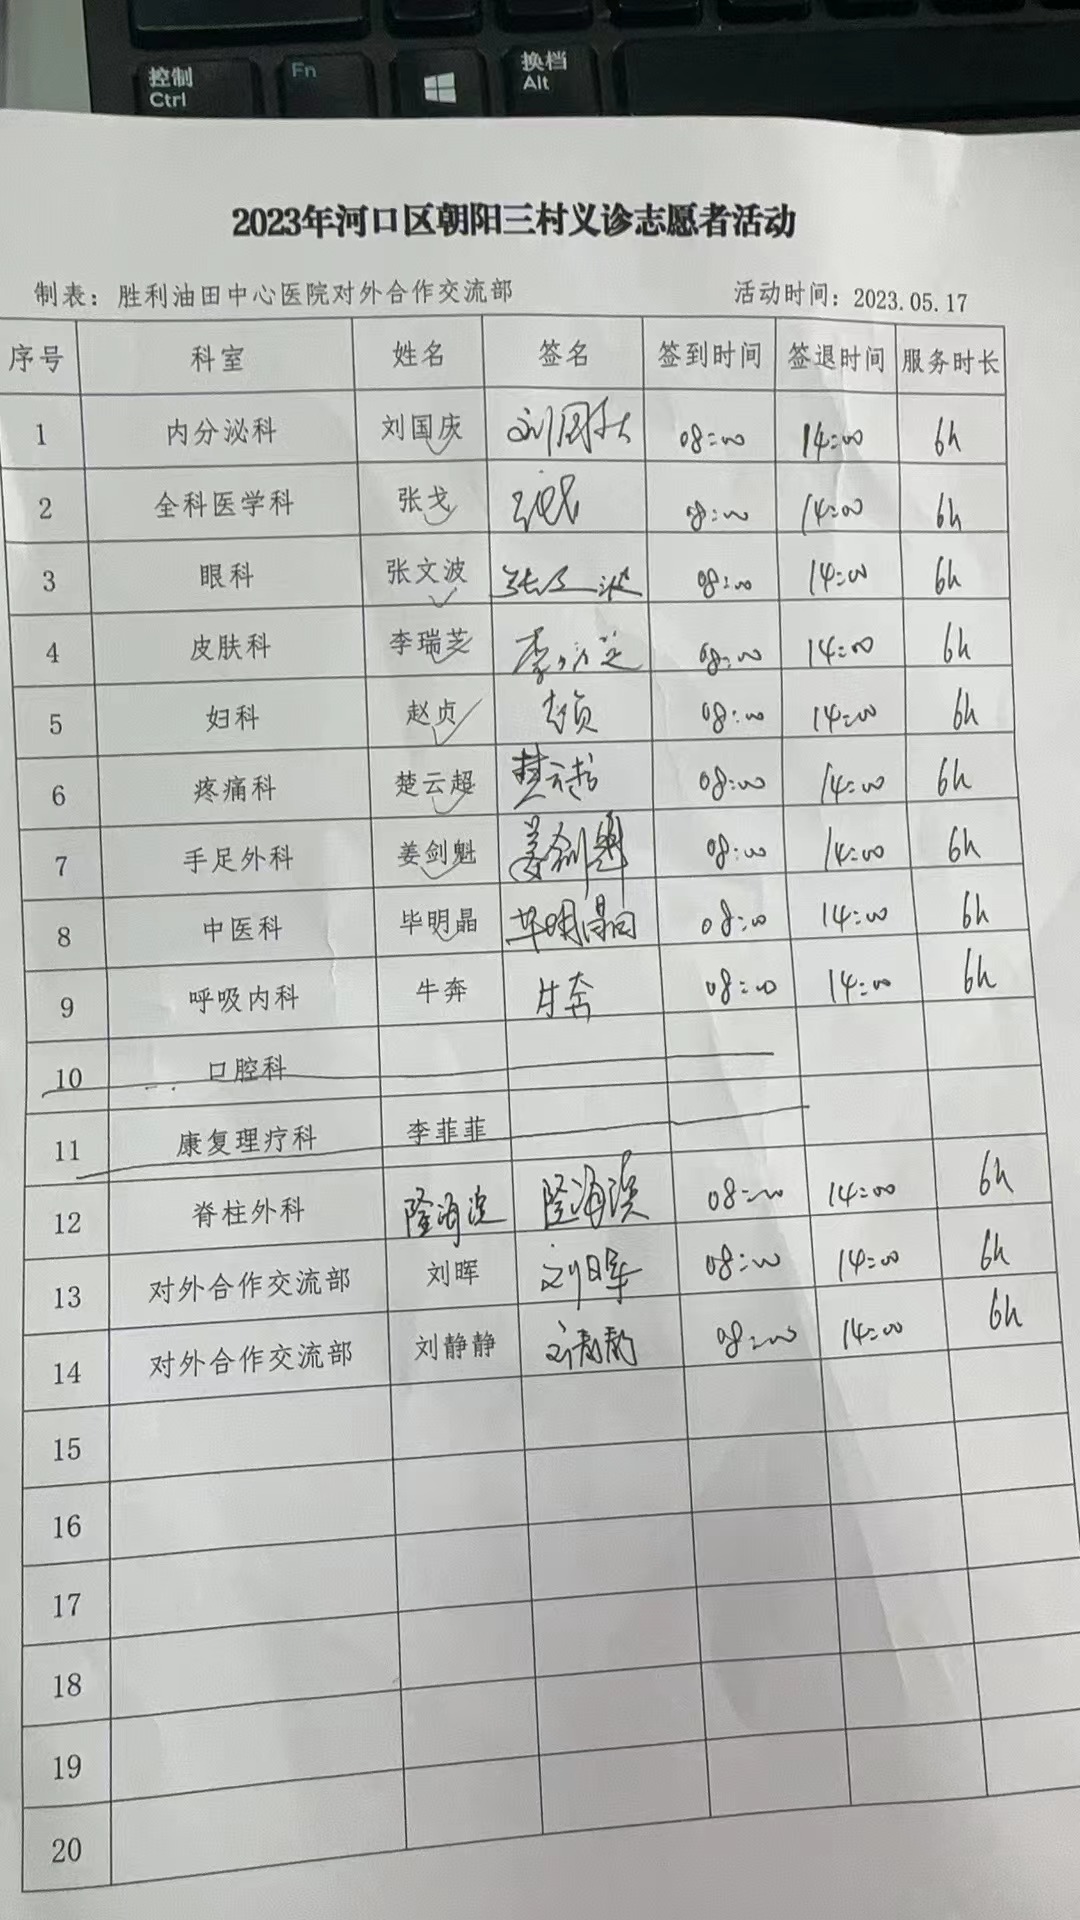 控制
Ctrl
Fn
换档
Alt
2023年河口区朝阳三村义诊志愿者活动
制表：胜利油田中心医院对外合作交流部 活动时间：2023.05.17
序号 科室 姓名 签名 签到时间 签退时间 服务时长
1 内分泌科 刘国庆 刘国庆 08:00 14:00 6h
2 全科医学科 张戈 张戈 08:00 14:00 6h
3 眼科 张文波 张文波 08:00 14:00 6h
4 皮肤科 李瑞芝 李瑞芝 08:00 14:00 6h
5 妇科 赵贞 赵贞 08:00 14:00 6h
6 疼痛科 楚云超 楚云超 08:00 14:00 6h
7 手足外科 姜剑魁 姜剑魁 08:00 14:00 6h
8 中医科 毕明晶 毕明晶 08:00 14:00 6h
9 呼吸内科 牛奔 牛奔 08:00 14:00 6h
10 口腔科
11 康复理疗科 李菲菲
12 脊柱外科 隆海滨 隆海滨 08:00 14:00 6h
13 对外合作交流部 刘晖 刘晖 08:00 14:00 6h
14 对外合作交流部 刘静静 刘静静 08:00 14:00 6h
15
16
17
18
19
20